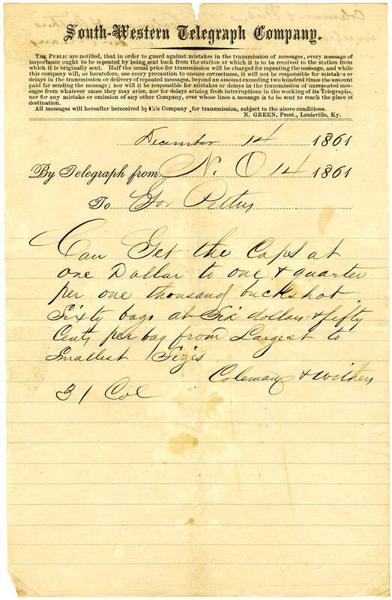 South-Western Telegraph Company.
THE PUBLIC are notified, that in order to guard against mistakes in the transmission of messages, every message of
importance ought to be repeated by being sent back from the station at which it is to be received to the station from
which it is originally sent. Half the usual price for transmission will be charged for repeating the message, and while
this company will, as heretofore, use every precaution to ensure correctness, it will not be responsible for mistakes or
delays in the transmission or delivery of repeated messages, beyond an amount exceeding two hundred times the amount
paid for sending the message; nor will it be responsible for mistakes or delays in the transmission of unrepeated messages
from whatever cause they may arise, nor for delays arising from interruptions in the working of its Telegraphs,
nor for any mistake or omission of any other Company, over whose lines a message is to be sent to reach the place of
destination.
All messages will hereafter be received by this Company for transmission, subject to the above conditions.
N. GREEN, Prest., Louisville, Ky.
December 14 1861
By Telegraph from N. O 14 1861
To Gov Pettus
Can Get the Caps at
one Dollar to one & quarter
per one thousand buckshot
Sixty bags at Six dollars & fifty
Cents per bag from Largest to
Smallest Sizes
Coleman & Withers
31 Col